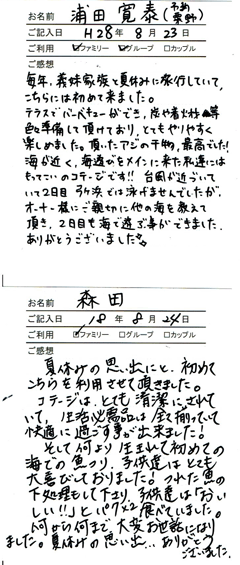 お名前 浦田 寛泰
ご記入日 H28年 8月 23日
ご利用 ☑ファミリー □グループ □カップル
ご感想
毎年、義妹家族と夏休みに旅行していて、
こちらには初めて来ました。
テラスでバーベキューができ、炭や着火剤等
色々準備して頂けており、とてもやりやすく
楽しめました。頂いたアジの干物、最高でした!
海が近く、海遊びをメインに来た私達には
もってこいのコテージです!! 台風が近づいて
いて2日目 弓ヶ浜では泳げませんでしたが、
オーナー様にご親切に他の海を教えて
頂き、2日目も海で遊ぶ事ができました。
ありがとうございました。
お名前 森田
ご記入日 18年 8月 24日
ご利用 ☑ファミリー □グループ □カップル
ご感想
夏休けの思い出にと、初めて
こちらを利用させて頂きました。
コテージは、とても清潔にされて
いて、生活必需品は全て揃っていて
快適に過ごす事が出来ました!
そして何より生まれて初めての
海での魚つり、子供達はとても
大喜びしておりました。つれた魚の
下処理もして下さり、子供達は「おい
しい!!」とパク×2食べていました。
何から何まで、大変お世話になり
ました。夏休けの思い出… ありがとう
ございました。